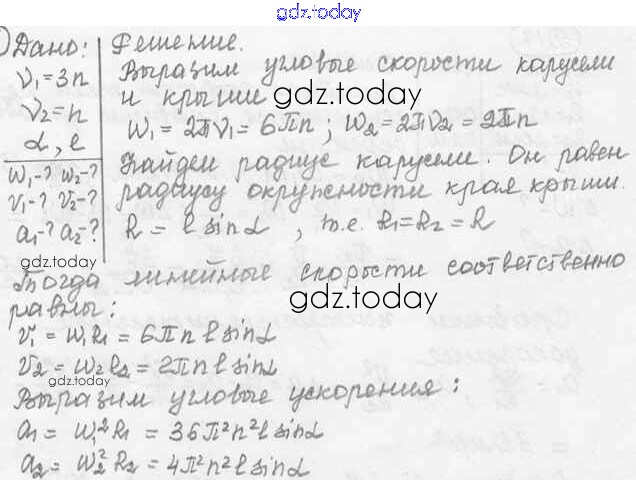 gdz.today
Дано: Решение.
ν₁=3n Выразим угловые скорости карусели
ν₂=n и крыши gdz.today
α, l ω₁=2πν₁=6πn; ω₂=2πν₂=2πn
ω₁-? ω₂-? Найдем радиус карусели. Он равен
v₁-? v₂-? радиусу окружности края крыши.
a₁-? a₂-? R = l sinα, т.е. R₁=R₂=R
gdz.today
Тогда линейные скорости соответственно
равны: gdz.today
v₁ = ω₁R₁ = 6πn l sinα
v₂ = ω₂R₂ = 2πn l sinα
gdz.today
Выразим угловые ускорения:
a₁ = ω₁²R₁ = 36π²n²l sinα
a₂ = ω₂²R₂ = 4π²n²l sinα